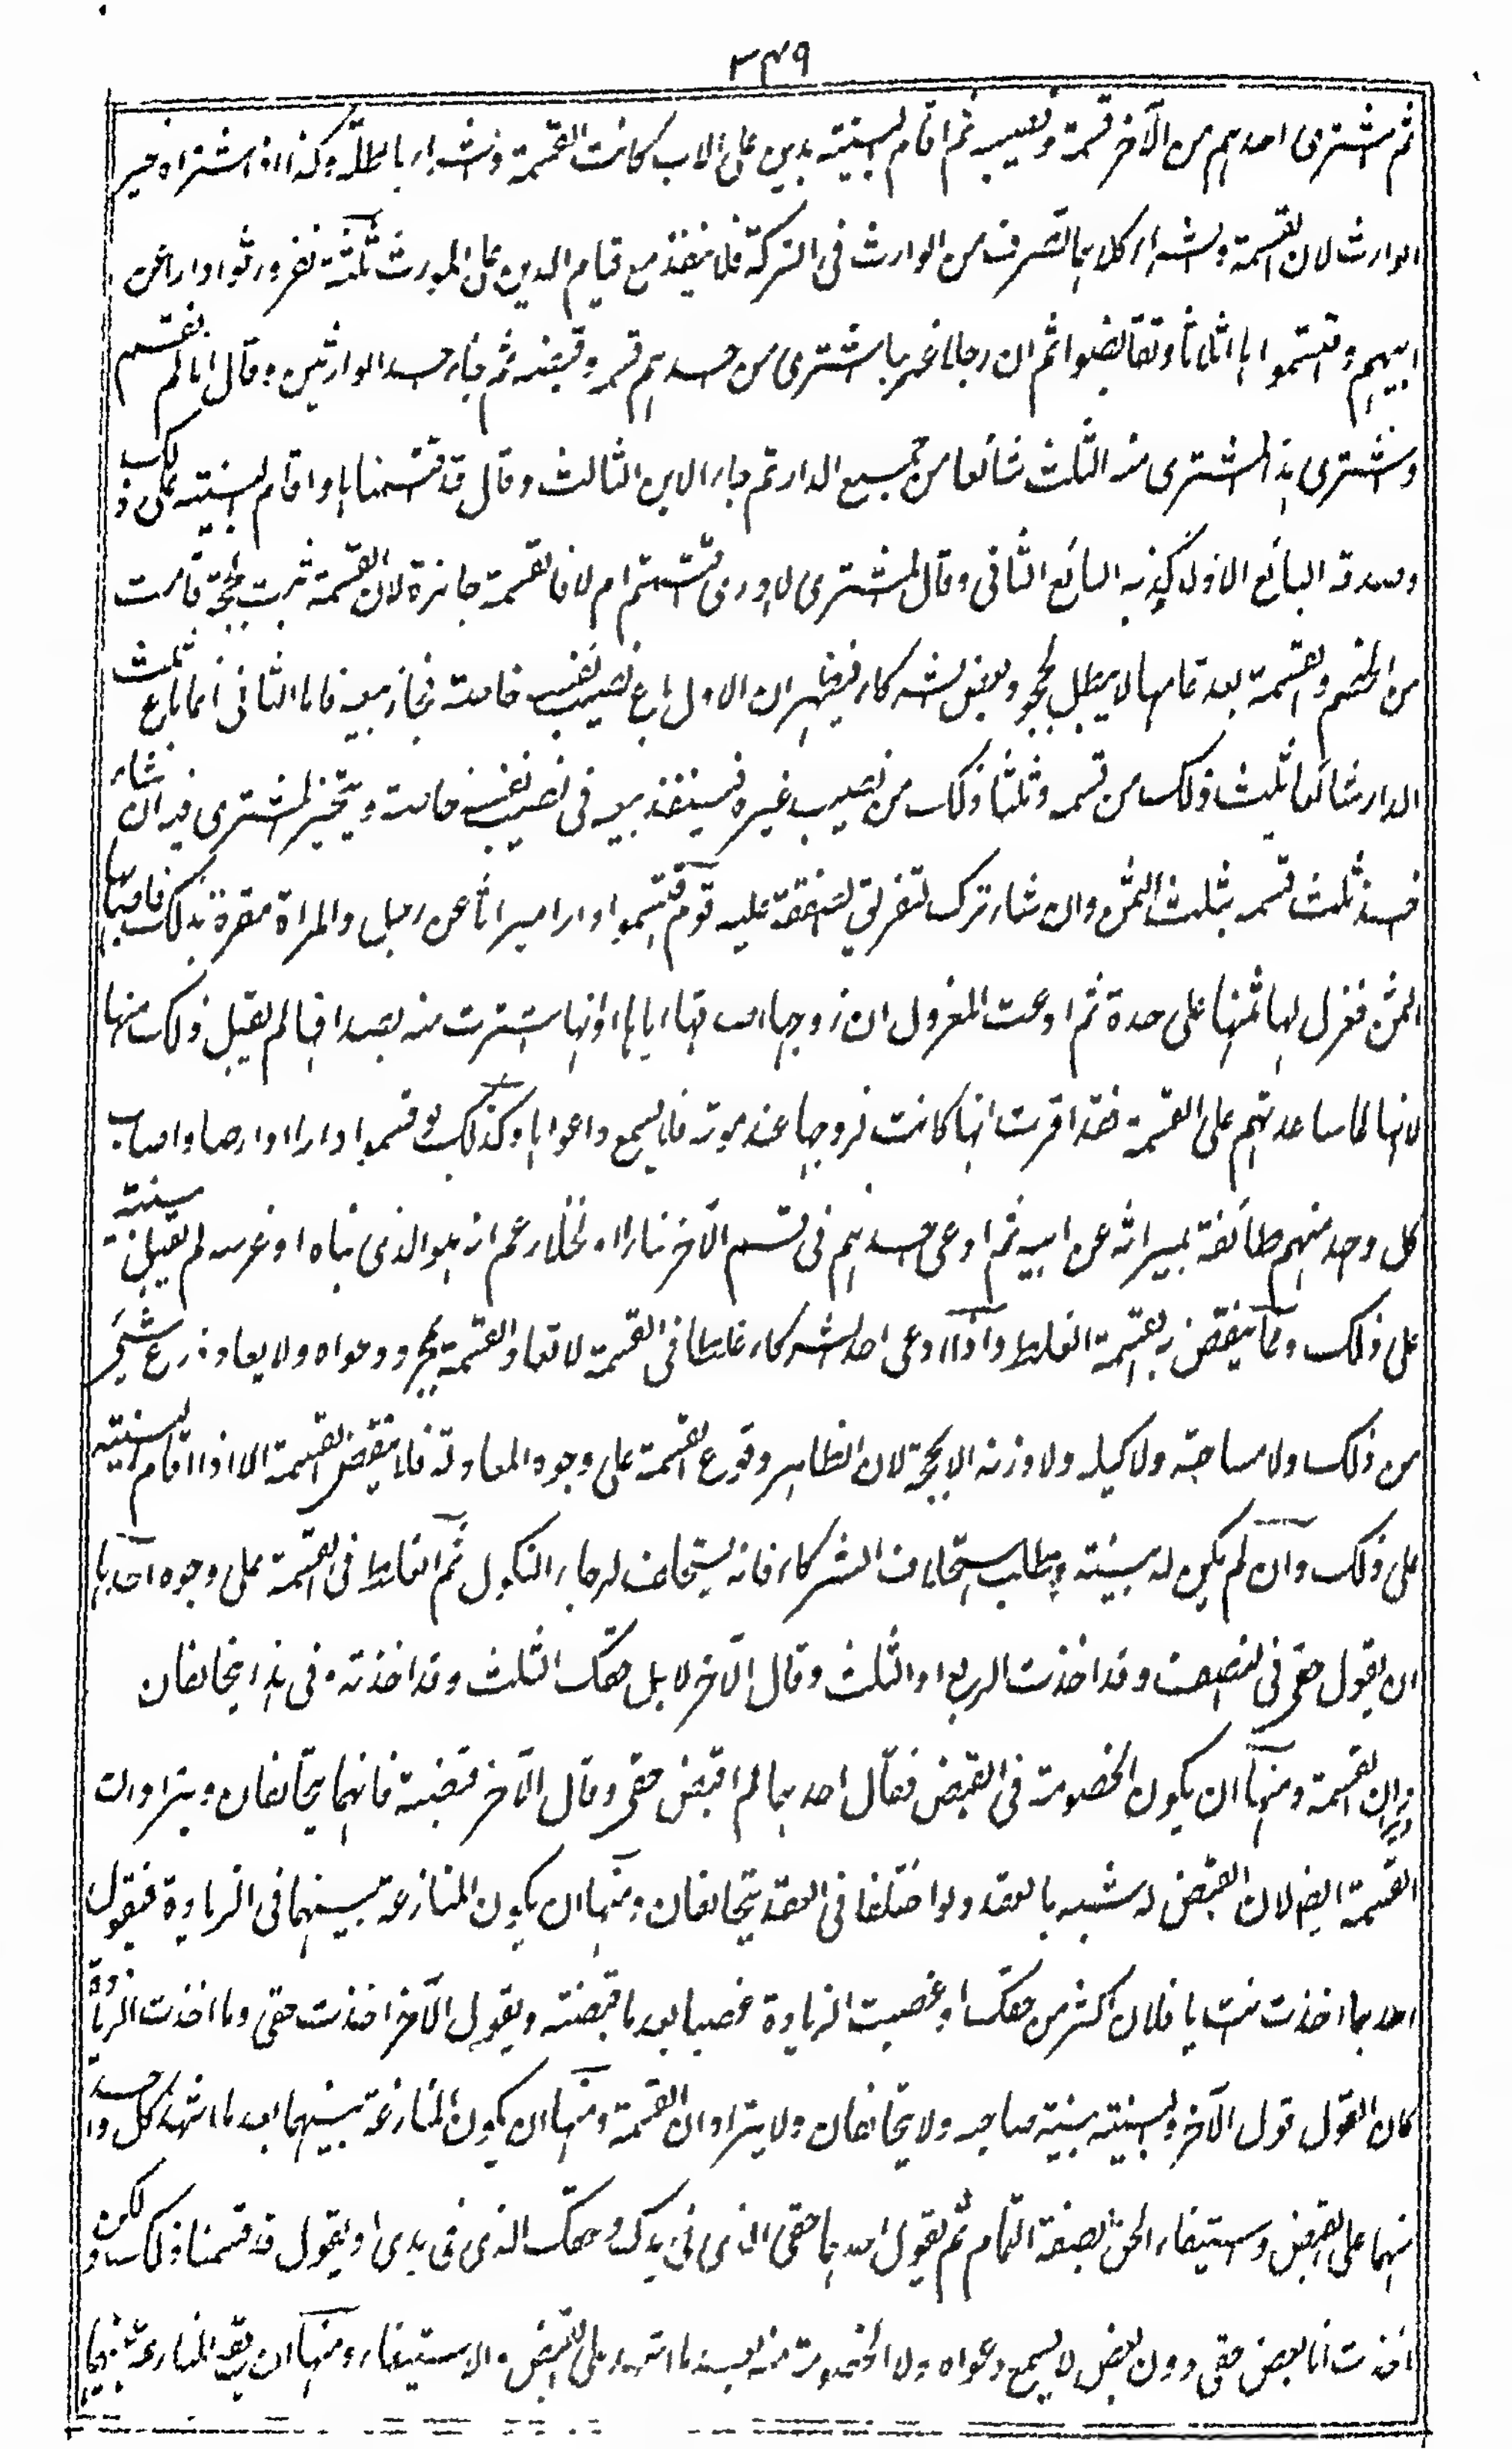 ٣٤٩
ثم اشترى احدهم من الآخر قسمه ونصيبه ثم اقام البينة بدين على الاب كانت القسمة والشراء باطلا وكذا اذا اشتراه غير
الوارث لان القسمة والشراء كلاهما تصرف من الوارث فى التركة فلا ينفذ مع قيام الدين على المورث ثلثة نفر ورثوا دارا عن
ابيهم واقتسموا ها اثلاثا وتقابضوا ثم ان رجلا غريبا اشترى من احدهم قسمه وقبضه ثم جاء احد الوارثين وقال انا لم نقتسم
واشترى هذا المشترى منه الثلث شائعا من جميع الدار ثم جاء الابن الثالث وقال قد اقتسمناها واقام البينة على ذلك
وصدقه البائع الاول وكذبه البائع الثانى وقال المشترى لا ادرى اقتسمتم ام لا فالقسمة جائزة لان القسمة ثبت بحجة قامت
من الخصم والقسمة بعد تمامها لا يبطل بجحود بعض الشركاء فيظهر ان الاول باع نصيب نفسه خاصة فجاز بيعه فاما الثانى انما باع ثلث
الدار شائعا ثلث ذلك من قسمه وثلثا ذلك من نصيب غيره فينفذ بيعه فى نصيب نفسه خاصة ويتخير المشترى فيه ان شاء
اخذ ثلث قسمه بثلث الثمن وان شاء ترك لتفرق الصفقة عليه قوم اقتسموا دارا ميراثا عن رجل والمراة مقرة بذلك فاصابها
الثمن فعزل لها ثمنها على حدة ثم ادعت المعزول ان زوجها اصدقها اياها او انها اشترت منه بصداقها لم يقبل ذلك منها
لانها لما ساعدتهم على القسمة فقد اقرت انها كانت لزوجها عند موته فلا يسمع دعواها وكذلك لو قسموا دارا او ارضا واصاب
كل واحد منهم طائفة بميراثه عن ابيه ثم ادعى احدهم فى قسم الآخر بناء او نخلا زعم انه هو الذى بناه او غرسه لم يقبل بينته
على ذلك ومما ينقض به القسمة الغلط واذا ادعى احد الشركاء غلطا فى القسمة لا تعاد القسمة بمجرد دعواه ولا يعاد ذرع شئ
من ذلك ولا مساحته ولا كيله ولا وزنه الا بحجة لان الظاهر وقوع القسمة على وجوه المعادلة فلا ينقض القسمة الا اذا اقام البينة
على ذلك وان لم يكن له بينة وطلب استحلاف الشركاء فانه يستحلف لرجاء النكول ثم الغلط فى القسمة على وجوه احدها
ان يقول حقى فى النصف وقد اخذت الربع او الثلث وقال الآخر لا بل حقك الثلث وقد اخذته وفى هذا يتحالفان
ويرادان القسمة ومنها ان يكون الخصومة فى القبض فقال احدهما لم اقبض حقى وقال الآخر قبضته فانهما يتحالفان ويترادان
القسمة ايضا لان القبض له شبه بالعقد ولو اختلفا فى العقد يتحالفان ومنها ان يكون المنازعة بينهما فى الزيادة فيقول
احدهما اخذت انت يا فلان اكثر من حقك او غصبت الزيادة غصبا بعد ما قبضته ويقول الآخر اخذت حقى وما اخذت الزيادة
كان القول قول الآخر والبينة بينة صاحبه ولا يتحالفان ولا يترادان القسمة ومنها ان يكون المنازعة بينهما بعد ما اشهد كل واحد
منهما على القبض واستيفاء الحق بصفة التمام ثم يقول احدهما حقى الذى فى يدك وحقك الذى فى يدى او يقول قد قسمنا ذلك ولكن
اخذت انا بعض حقى دون بعض لا يسمع دعواه ولا الخصومة منه بعد ما اشهد على القبض والاستيفاء ومنها ان يقع المنازعة بينهما